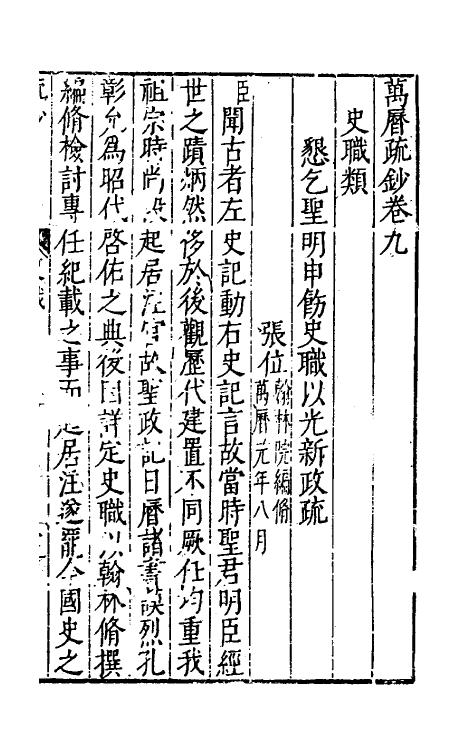 萬曆疏鈔卷九
史職類
懇乞聖明申飭史職以光新政疏
張位翰林院編脩
萬曆元年八月
臣聞古者左史記動右史記言故當時聖君明臣經
世之蹟炳然侈於後觀歷代建置不同厥任均重我
祖宗時尚設起居注官故聖政記日曆諸書謨烈孔
彰允爲昭代啓佑之典後因詳定史職以翰林脩撰
編脩檢討專任紀載之事而起居注遂罷今國史之